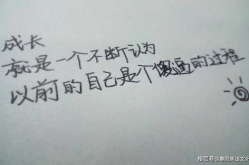 成长
就是一个不断认为
以前的自己是个傻逼的过程